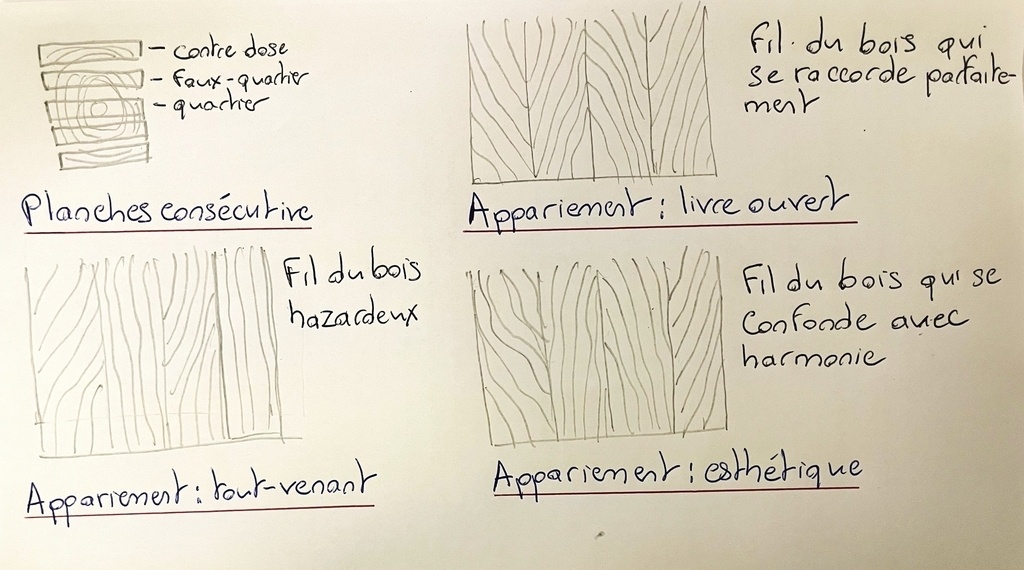 - contre dose
- faux-quartier
- quartier
Planches consécutive
Fil du bois qui
se raccorde parfaite-
ment
Appariement : livre ouvert
Fil du bois
hazardeux
Appariement : tout-venant
Fil du bois qui se
confonde avec
harmonie
Appariement : esthétique